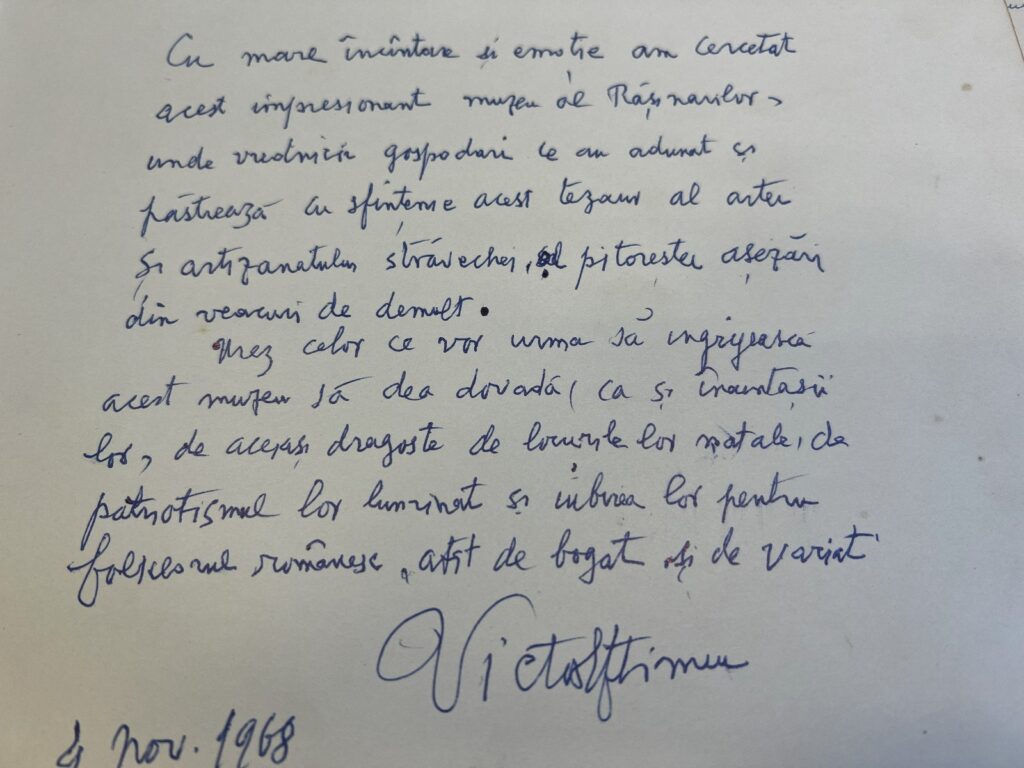 Cu mare încîntare și emoție am cercetat
acest impresionant muzeu al Rășinarilor,
unde vrednicii gospodari ce au adunat și
păstrează cu sfințenie acest tezaur al artei
și artizanatului străvechei, al pitoreștei așezări
din veacuri de demult.
Urez celor ce vor urma să îngrijească
acest muzeu să dea dovadă, ca și înaintașii
lor, de aceiași dragoste de locurile lor natale, de
patriotismul lor luminat și iubirea lor pentru
folklorul românesc, atît de bogat și de variat
Victor Eftimiu
4 nov. 1968